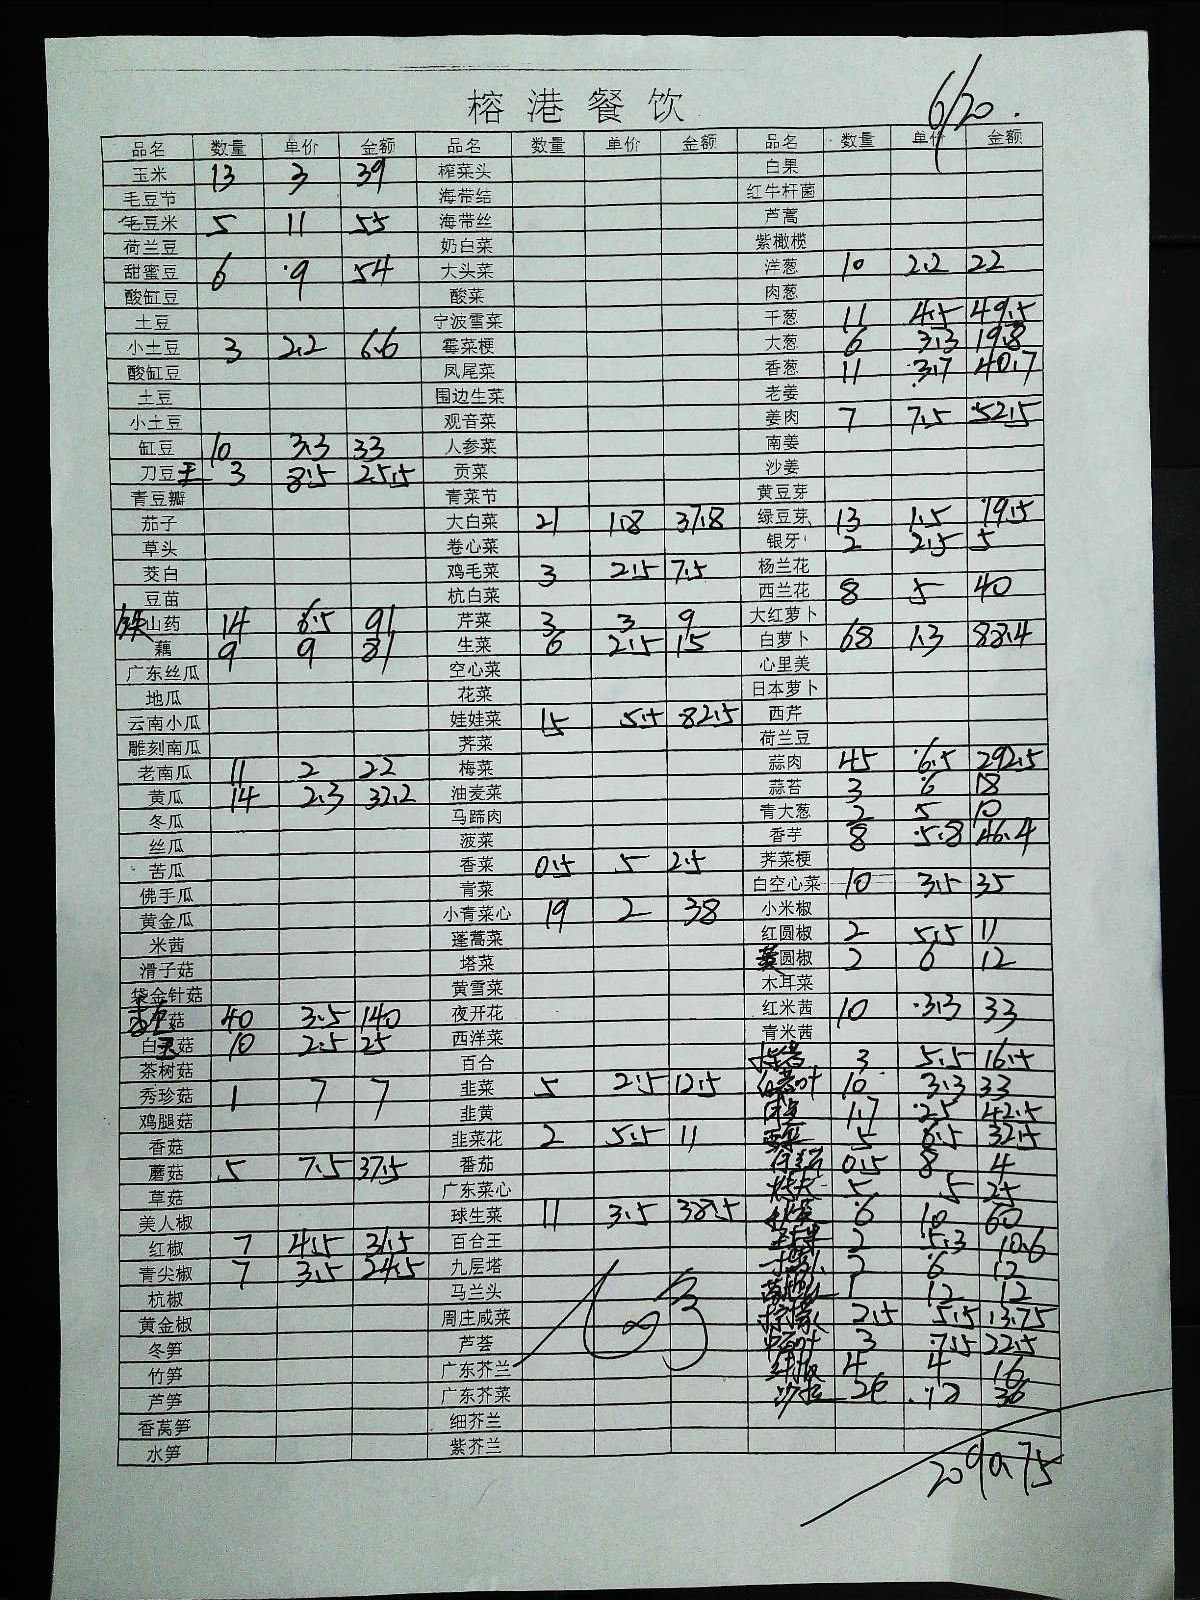 榕港餐饮
6/20.
品名 数量 单价 金额 品名 数量 单价 金额 品名 数量 单价 金额
玉米 13 3 39 榨菜头 白果
毛豆节 海带结 红牛杆菌
毛豆米 5 11 55 海带丝 芦蒿
荷兰豆 奶白菜 紫橄榄
甜蜜豆 6 9 54 大头菜 洋葱 10 2.2 22
酸缸豆 酸菜 肉葱
土豆 宁波雪菜 干葱 11 4.5 49.5
小土豆 3 2.2 6.6 霉菜梗 大葱 6 3.3 19.8
酸缸豆 凤尾菜 香葱 11 3.7 40.7
土豆 围边生菜 老姜
小土豆 观音菜 姜肉 7 7.5 52.5
缸豆 10 3.3 33 人参菜 南姜
刀豆王 3 8.5 25.5 贡菜 沙姜
青豆瓣 青菜节 黄豆芽
茄子 大白菜 21 1.8 37.8 绿豆芽 13 1.5 19.5
草头 卷心菜 银牙 2 2.5 5
茭白 鸡毛菜 3 2.5 7.5 杨兰花
豆苗 杭白菜 西兰花 8 5 40
铁山药 14 6.5 91 芹菜 3 3 9 大红萝卜
藕 9 9 81 生菜 6 2.5 15 白萝卜 68 1.3 88.4
广东丝瓜 空心菜 心里美
地瓜 花菜 日本萝卜
云南小瓜 娃娃菜 15 5.5 82.5 西芹
雕刻南瓜 荠菜 荷兰豆
老南瓜 11 2 22 梅菜 蒜肉 45 6.5 292.5
黄瓜 14 2.3 32.2 油麦菜 蒜苔 3 6 18
冬瓜 马蹄肉 青大葱 2 5 10
丝瓜 菠菜 香芋 8 5.8 46.4
苦瓜 香菜 0.5 5 2.5 荠菜梗
佛手瓜 青菜 白空心菜 10 3.5 35
黄金瓜 小青菜心 19 2 38 小米椒
米茜 蓬蒿菜 红圆椒 2 5.5 11
滑子菇 塔菜 黄圆椒 2 6 12
袋金针菇 黄雪菜 木耳菜
菇 40 3.5 140 夜开花 红米茜 10 3.3 33
白灵菇 10 2.5 25 西洋菜 青米茜
茶树菇 百合 3 5.5 16.5
秀珍菇 1 7 7 韭菜 5 2.5 12.5 叶 10 3.3 33
鸡腿菇 韭黄 17 2.5 42.5
香菇 韭菜花 2 5.5 11 5 6.5 32.5
蘑菇 5 7.5 37.5 番茄 0.5 8 4
草菇 广东菜心 5 5 25
美人椒 球生菜 11 3.5 38.5 6 10 60
红椒 7 4.5 31.5 百合王 2 5.3 10.6
青尖椒 7 3.5 24.5 九层塔 2 6 12
杭椒 马兰头 1 12 12
黄金椒 周庄咸菜 2.5 5.5 13.75
冬笋 芦荟 叶 3 7.5 22.5
竹笋 广东芥兰 4 4 16
芦笋 广东芥菜 沙拉 36
香莴笋 细芥兰
水笋 紫芥兰
2090.75